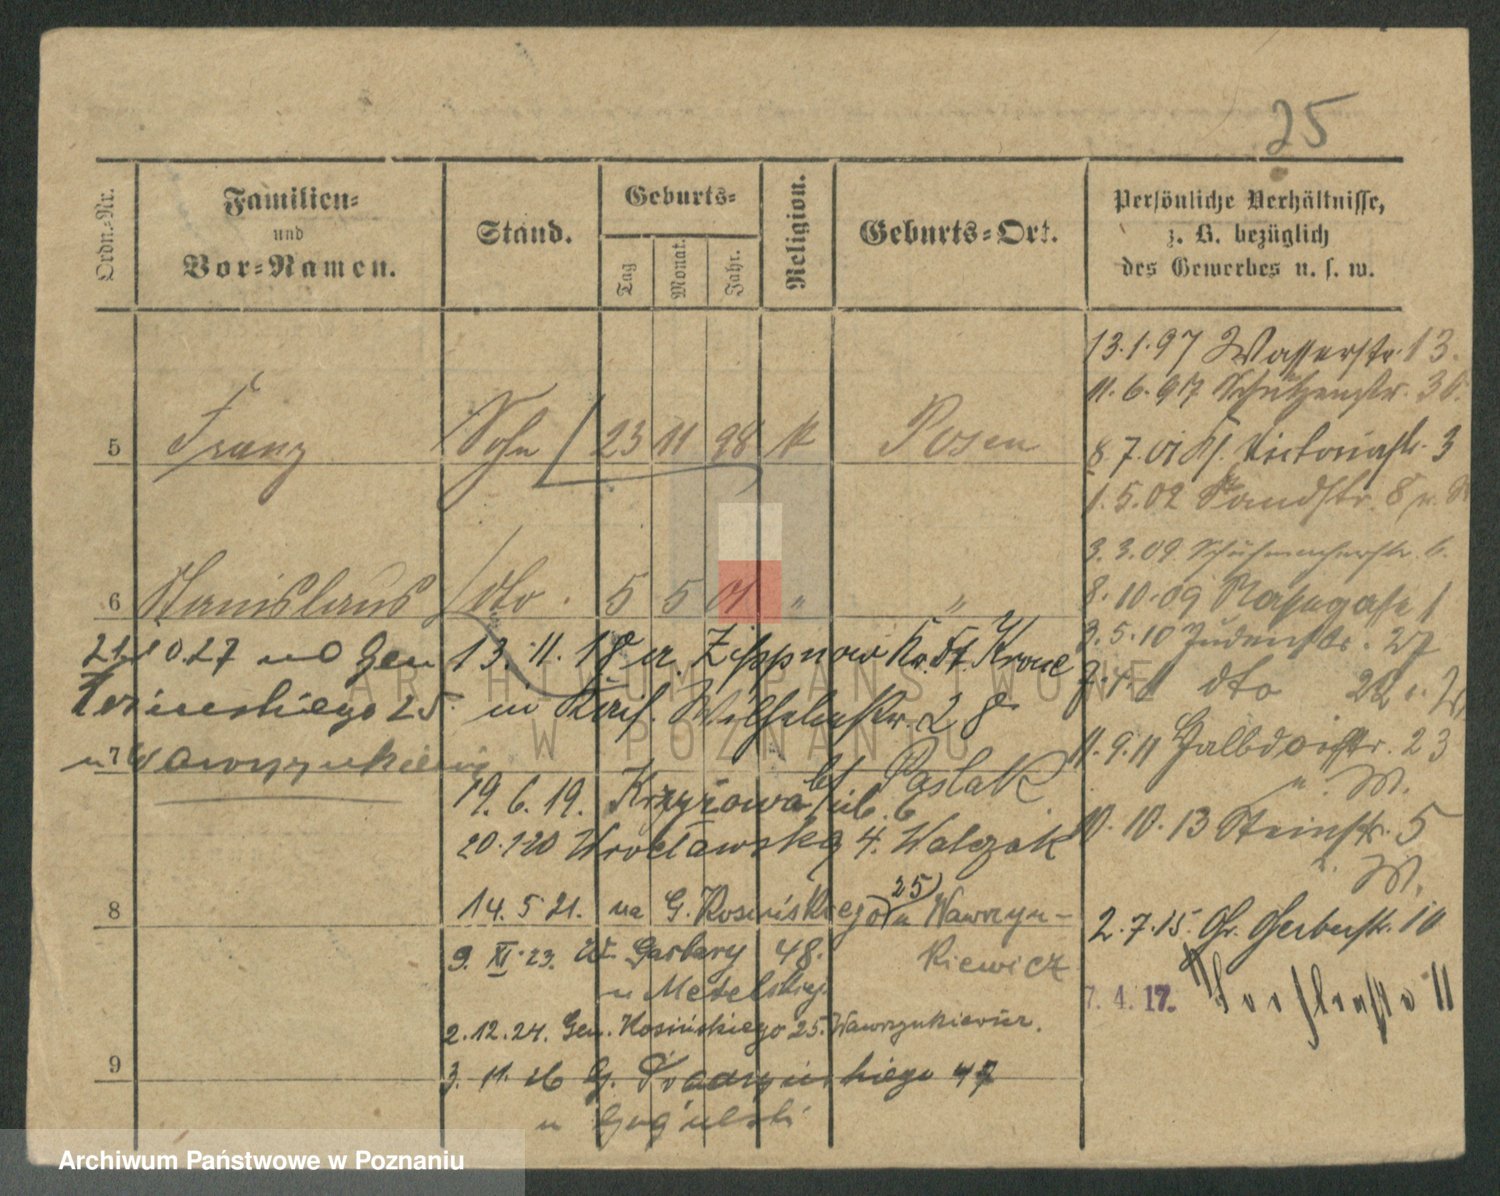 25
Ordn.-Nr.
Familien-
und
Vor-Namen.
Stand.
Geburts-
Tag
Monat.
Jahr.
Religion.
Geburts-Ort.
Persönliche Verhältnisse,
z. B. bezüglich
des Gewerbes u. s. w.
5 Franz Sohn 23 11 98 k Posen
6 Stanislaus dto. 5 5 01 " "
21.10.27 Gen
25
u Wawrzynkiewicz
13.11.18 Zippnow Kr. Dt. Krone
in Wilhelmstr. 28
19.6.19. Krzyżowa 6 Paslak
20.1.20 Wrocławska 4. Walczak
8
14.5.21. na G. Kosińskiego 25 u Wawrzyn-
kiewicz
9. XI. 23. W. Garbary 48.
u Metelskiej
2.12.24. Gen. Kosińskiego 25. Wawrzynkiewicz.
9
3. 11. 26 G. Prądzyńskiego 47
u
13.1.97 Wasserstr. 13.
11.6.97 Schützenstr.
8.7.01 Kl. Victoriastr. 3
1.5.02 Sandstr. 8
3.3.09. Schuhmacherstr. 6.
8.10.09 Nassegasse 1
3.5.10 Judenstr. 27
dto
11.9.11 Halbdorfstr. 23
u. W.
10.10.13 Steinstr. 5
u. W.
2.7.15. Gr. Gerberstr.
7.4.17. 11
ARCHIWUM PAŃSTWOWE
W POZNANIU
Archiwum Państwowe w Poznaniu